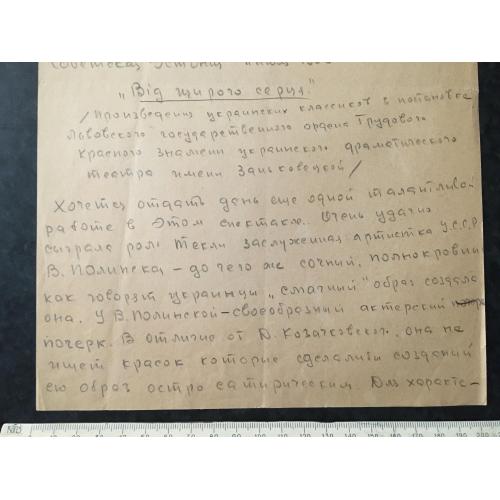 Советская Эстония
„Від щирого серця."
/Произведения украинских классиков в постановке
Львовского государственного ордена Трудового
Красного Знамени украинского драматического
театра имени Заньковецкой/
Хочется отдать дань еще одной талантливой
работе в этом спектакле. Очень удачно
сыграла роль Текли заслуженная артистка У.С.С.Р.
В. Полинская – до чего же сочный, полнокровный
как говорят украинцы „смачний" образ создала
она. У В. Полинской – своеобразний актерский
почерк. В отличие от Д. Козачковского, она не
ищет красок которые сделали би созданий
ею образ остро сатирическим. Для характе-